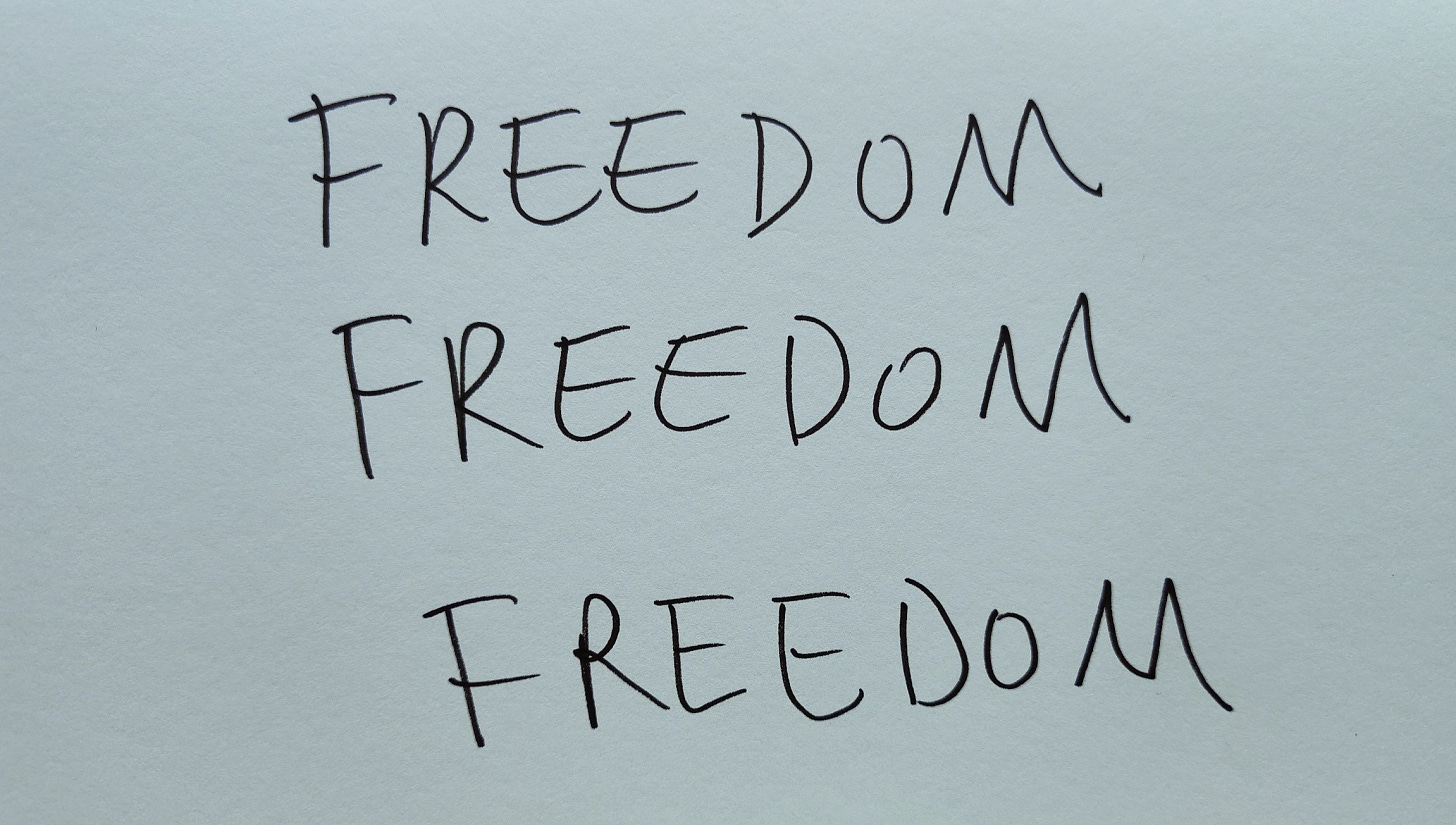 FREEDOM
FREEDOM
FREEDOM